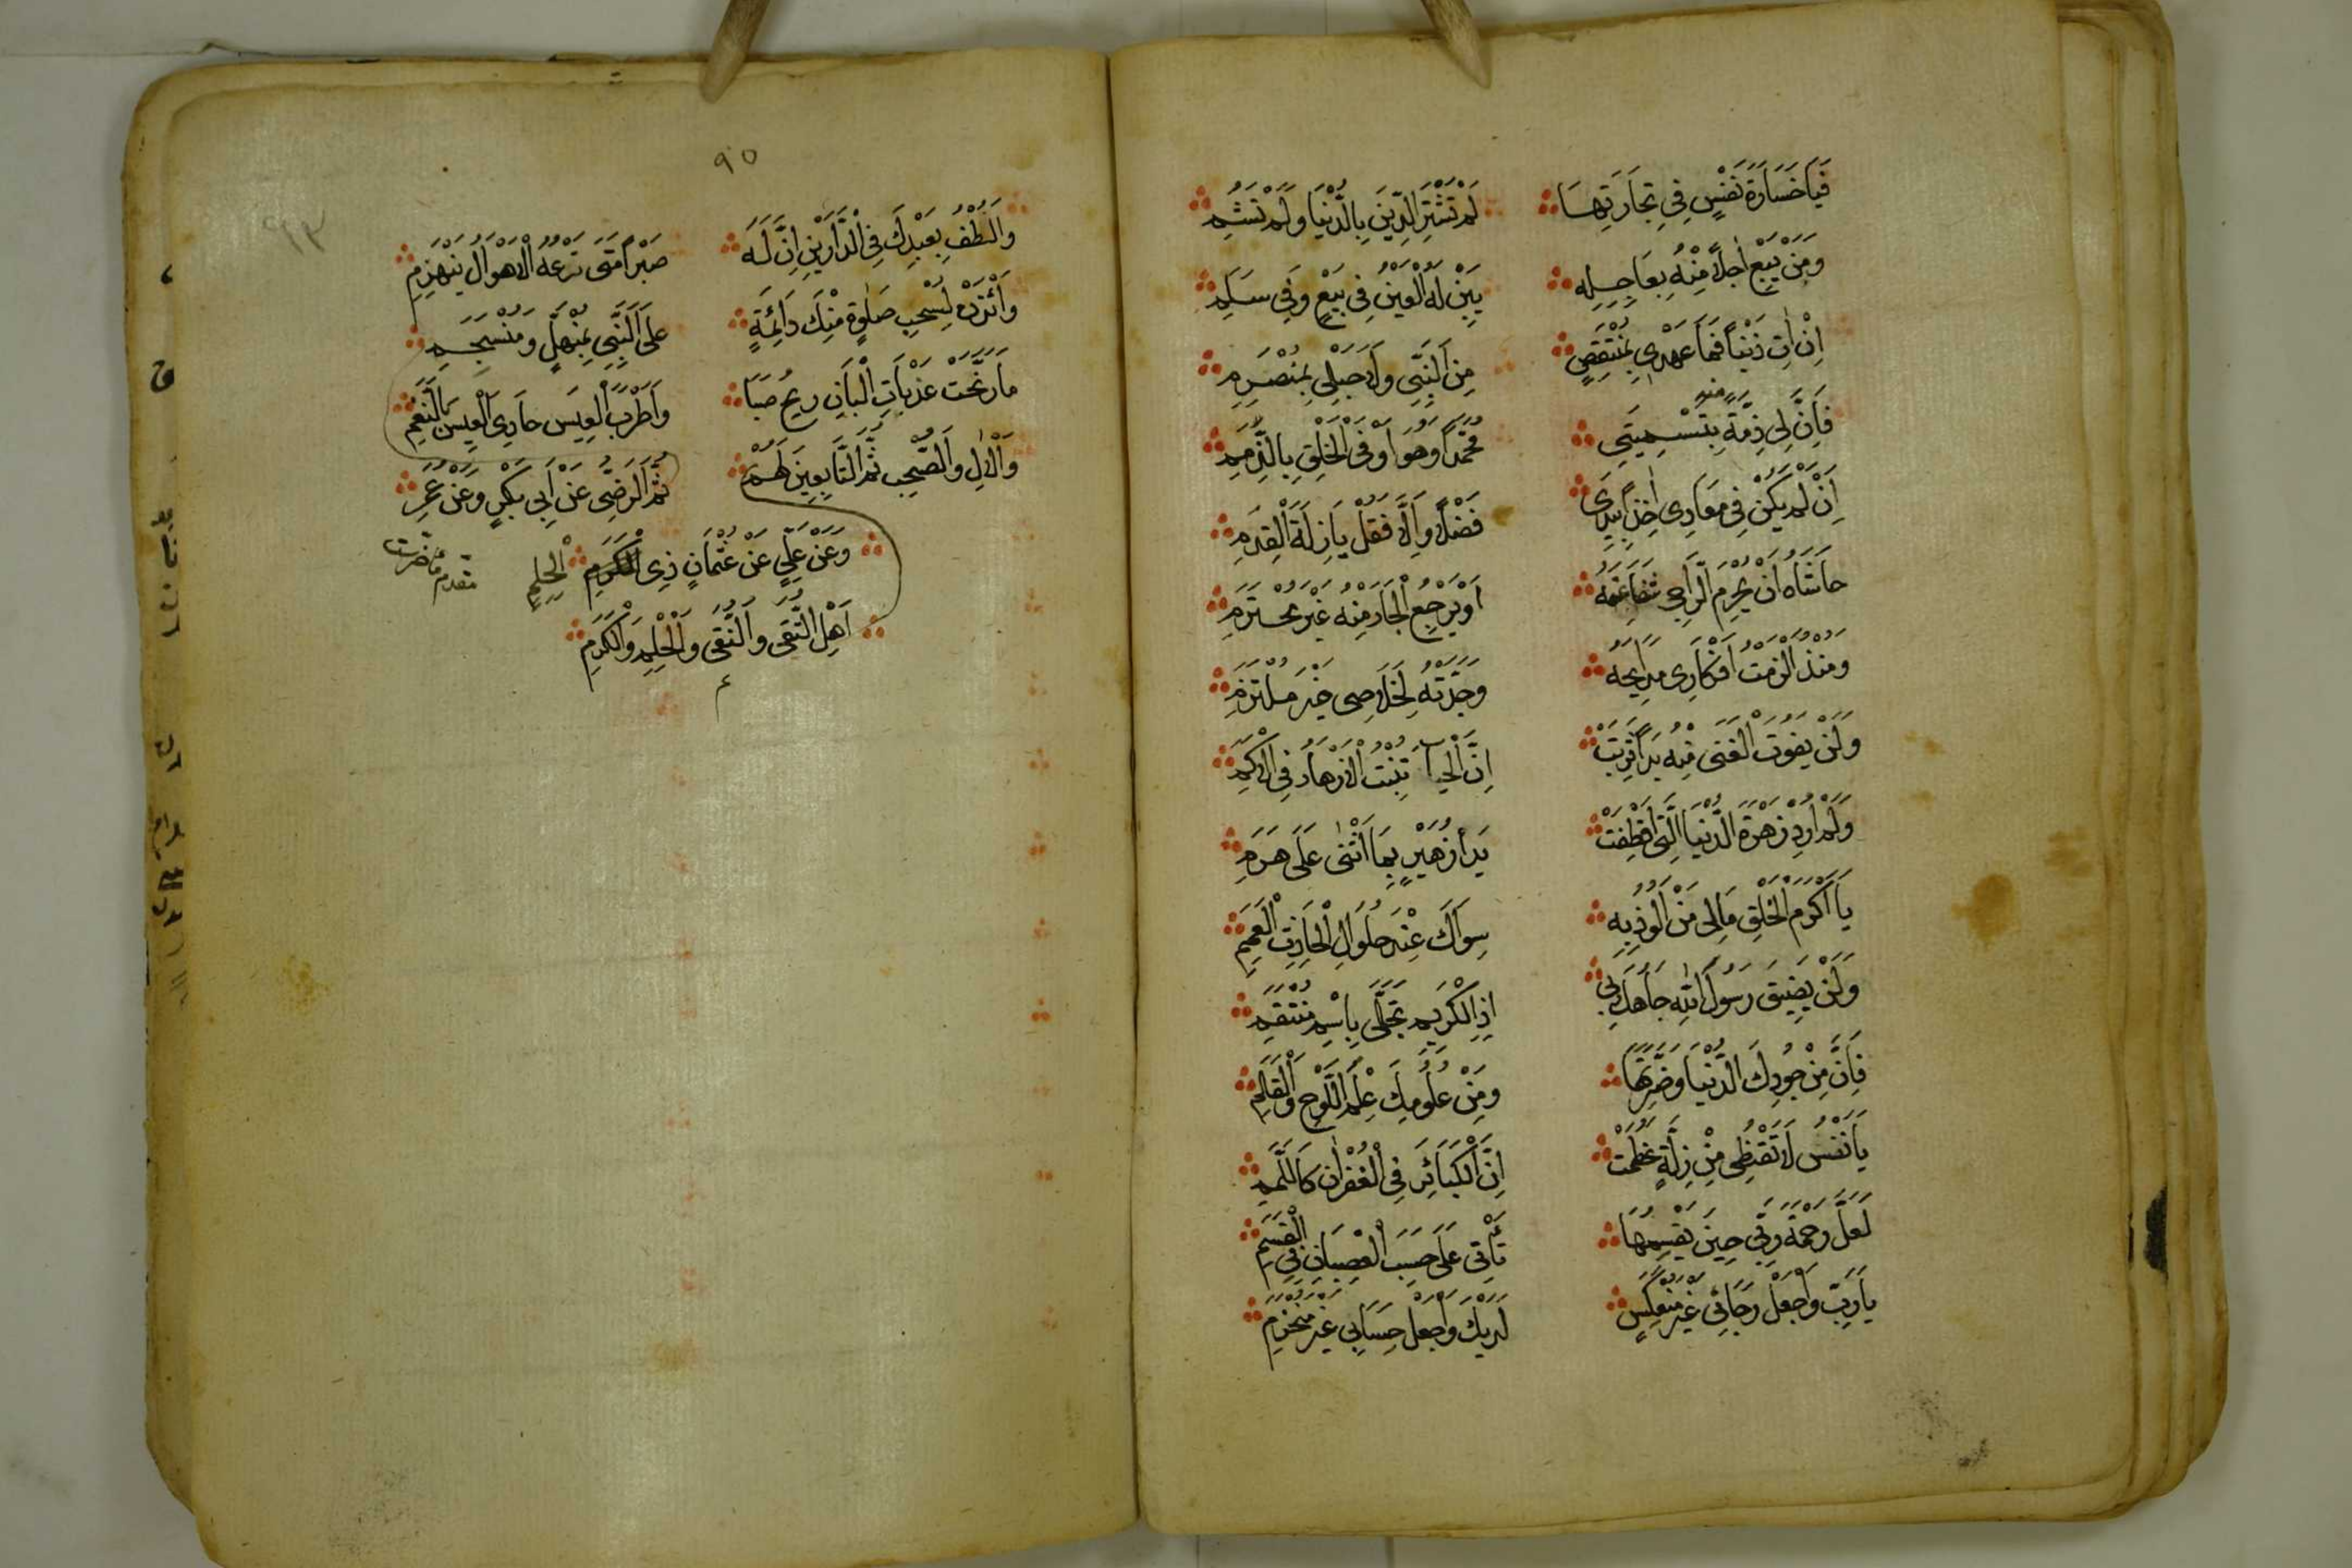 فَيَا خَسَارَةَ نَفْسٍ فِي تِجَارَتِهَا لَمْ تَشْتَرِ الدِّينَ بِالدُّنْيَا وَلَمْ تَسُمِ
وَمَنْ يَبِعْ اٰجِلًا مِنْهُ بِعَاجِلِهِ يَبِنْ لَهُ الْغَبْنُ فِي بَيْعٍ وَفِي سَلَمِ
اِنْ اٰتِ ذَنْبًا فَمَا عَهْدِي بِمُنْتَقِضٍ مِنَ النَّبِيِّ وَلَا حَبْلِي بِمُنْصَرِمِ
فَاِنَّ لِي ذِمَّةً مِنْهُ بِتَسْمِيَتِي مُحَمَّدًا وَهُوَ اَوْفَى الْخَلْقِ بِالذِّمَمِ
اِنْ لَمْ يَكُنْ فِي مَعَادِي اٰخِذًا بِيَدِي فَضْلًا وَاِلَّا فَقُلْ يَا زَلَّةَ الْقَدَمِ
حَاشَاهُ اَنْ يُحْرِمَ الرَّاجِي شَفَاعَتَهُ اَوْ يَرْجِعَ الْجَارُ مِنْهُ غَيْرَ مُحْتَرَمِ
وَمُنْذُ اَلْزَمْتُ اَفْكَارِي مَدَايِحَهُ وَجَدْتُهُ لِخَلَاصِي خَيْرَ مُلْتَزِمِ
وَلَنْ يَفُوتَ الْغِنَى مِنْهُ يَدًا تَرِبَتْ اِنَّ الْحَيَا تُنْبِتُ الْاَزْهَارَ فِي الْاَكَمِ
وَلَمْ اُرِدْ زَهْرَةَ الدُّنْيَا الَّتِي اقْتَطَفَتْ يَدَا زُهَيْرٍ بِمَا اَثْنٰى عَلَى هَرَمِ
يَا اَكْرَمَ الْخَلْقِ مَا لِي مَنْ اَلُوذُ بِهِ سِوَاكَ عِنْدَ حُلُولِ الْحَادِثِ الْعَمِمِ
وَلَنْ يَضِيقَ رَسُولَ اللّٰهِ جَاهُكَ بِي اِذِ الْكَرِيمُ تَجَلَّى بِاسْمِ مُنْتَقِمِ
فَاِنَّ مِنْ جُودِكَ الدُّنْيَا وَضَرَّتَهَا وَمِنْ عُلُومِكَ عِلْمَ اللَّوْحِ وَالْقَلَمِ
يَا نَفْسُ لَا تَقْنَطِي مِنْ زَلَّةٍ عَظُمَتْ اِنَّ الْكَبَائِرَ فِي الْغُفْرَانِ كَاللَّمَمِ
لَعَلَّ رَحْمَةَ رَبِّي حِينَ يَقْسِمُهَا تَأْتِي عَلَى حَسَبِ الْعِصْيَانِ فِي الْقِسَمِ
يَا رَبِّ وَاجْعَلْ رَجَائِي غَيْرَ مُنْعَكِسٍ لَدَيْكَ وَاجْعَلْ حِسَابِي غَيْرَ مُنْخَرِمِ
٩٥
٩٣
وَالْطُفْ بِعَبْدِكَ فِي الدَّارَيْنِ اِنَّ لَهُ صَبْرًا مَتَى تَدْعُهُ الْاَهْوَالُ يَنْهَزِمِ
وَائْذَنْ لِسُحْبِ صَلٰوةٍ مِنْكَ دَائِمَةٍ عَلَى النَّبِيِّ بِمُنْهَلٍّ وَمُنْسَجِمِ
مَا رَنَّحَتْ عَذَبَاتِ الْبَانِ رِيحُ صَبَا وَاَطْرَبَ الْعِيسَ حَادِي الْعِيسِ بِالنَّغَمِ
وَالْاٰلِ وَالصَّحْبِ ثُمَّ التَّابِعِينَ لَهُمْ
ثُمَّ الرِّضَى عَنْ اَبِي بَكْرٍ وَعَنْ عُمَرَ
وَعَنْ عَلِيٍّ عَنْ عُثْمَانٍ ذِي الْكَرَمِ الْحِلِمِ
اَهْلِ التُّقَى وَالنَّقَى وَالْحِلْمِ وَالْكَرَمِ